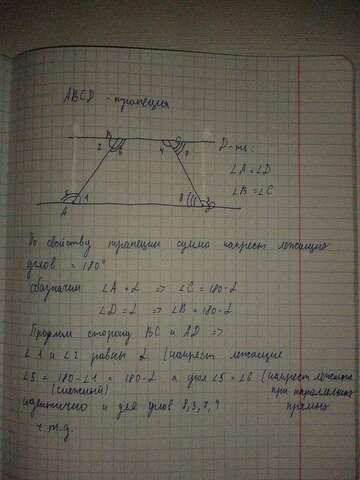 ABCD - трапеция
B C Д-ть:
2 6 4 7
∠A = ∠D
∠B = ∠C
5 1 8 3
A
По свойству трапеции сумма накрест лежащих
углов = 180°
обозначим ∠A = L => ∠C = 180-L
∠D = L => ∠B = 180-L
Продлим сторону BC и AD =>
∠1 и ∠2 равны L (накрест лежащие
∠5 = 180-∠1 = 180-L а угол ∠5 = ∠6 (накрест лежащие
(смежный) при параллельных
идентично и для углов 8,3,7,4 прямых
ч.т.д.